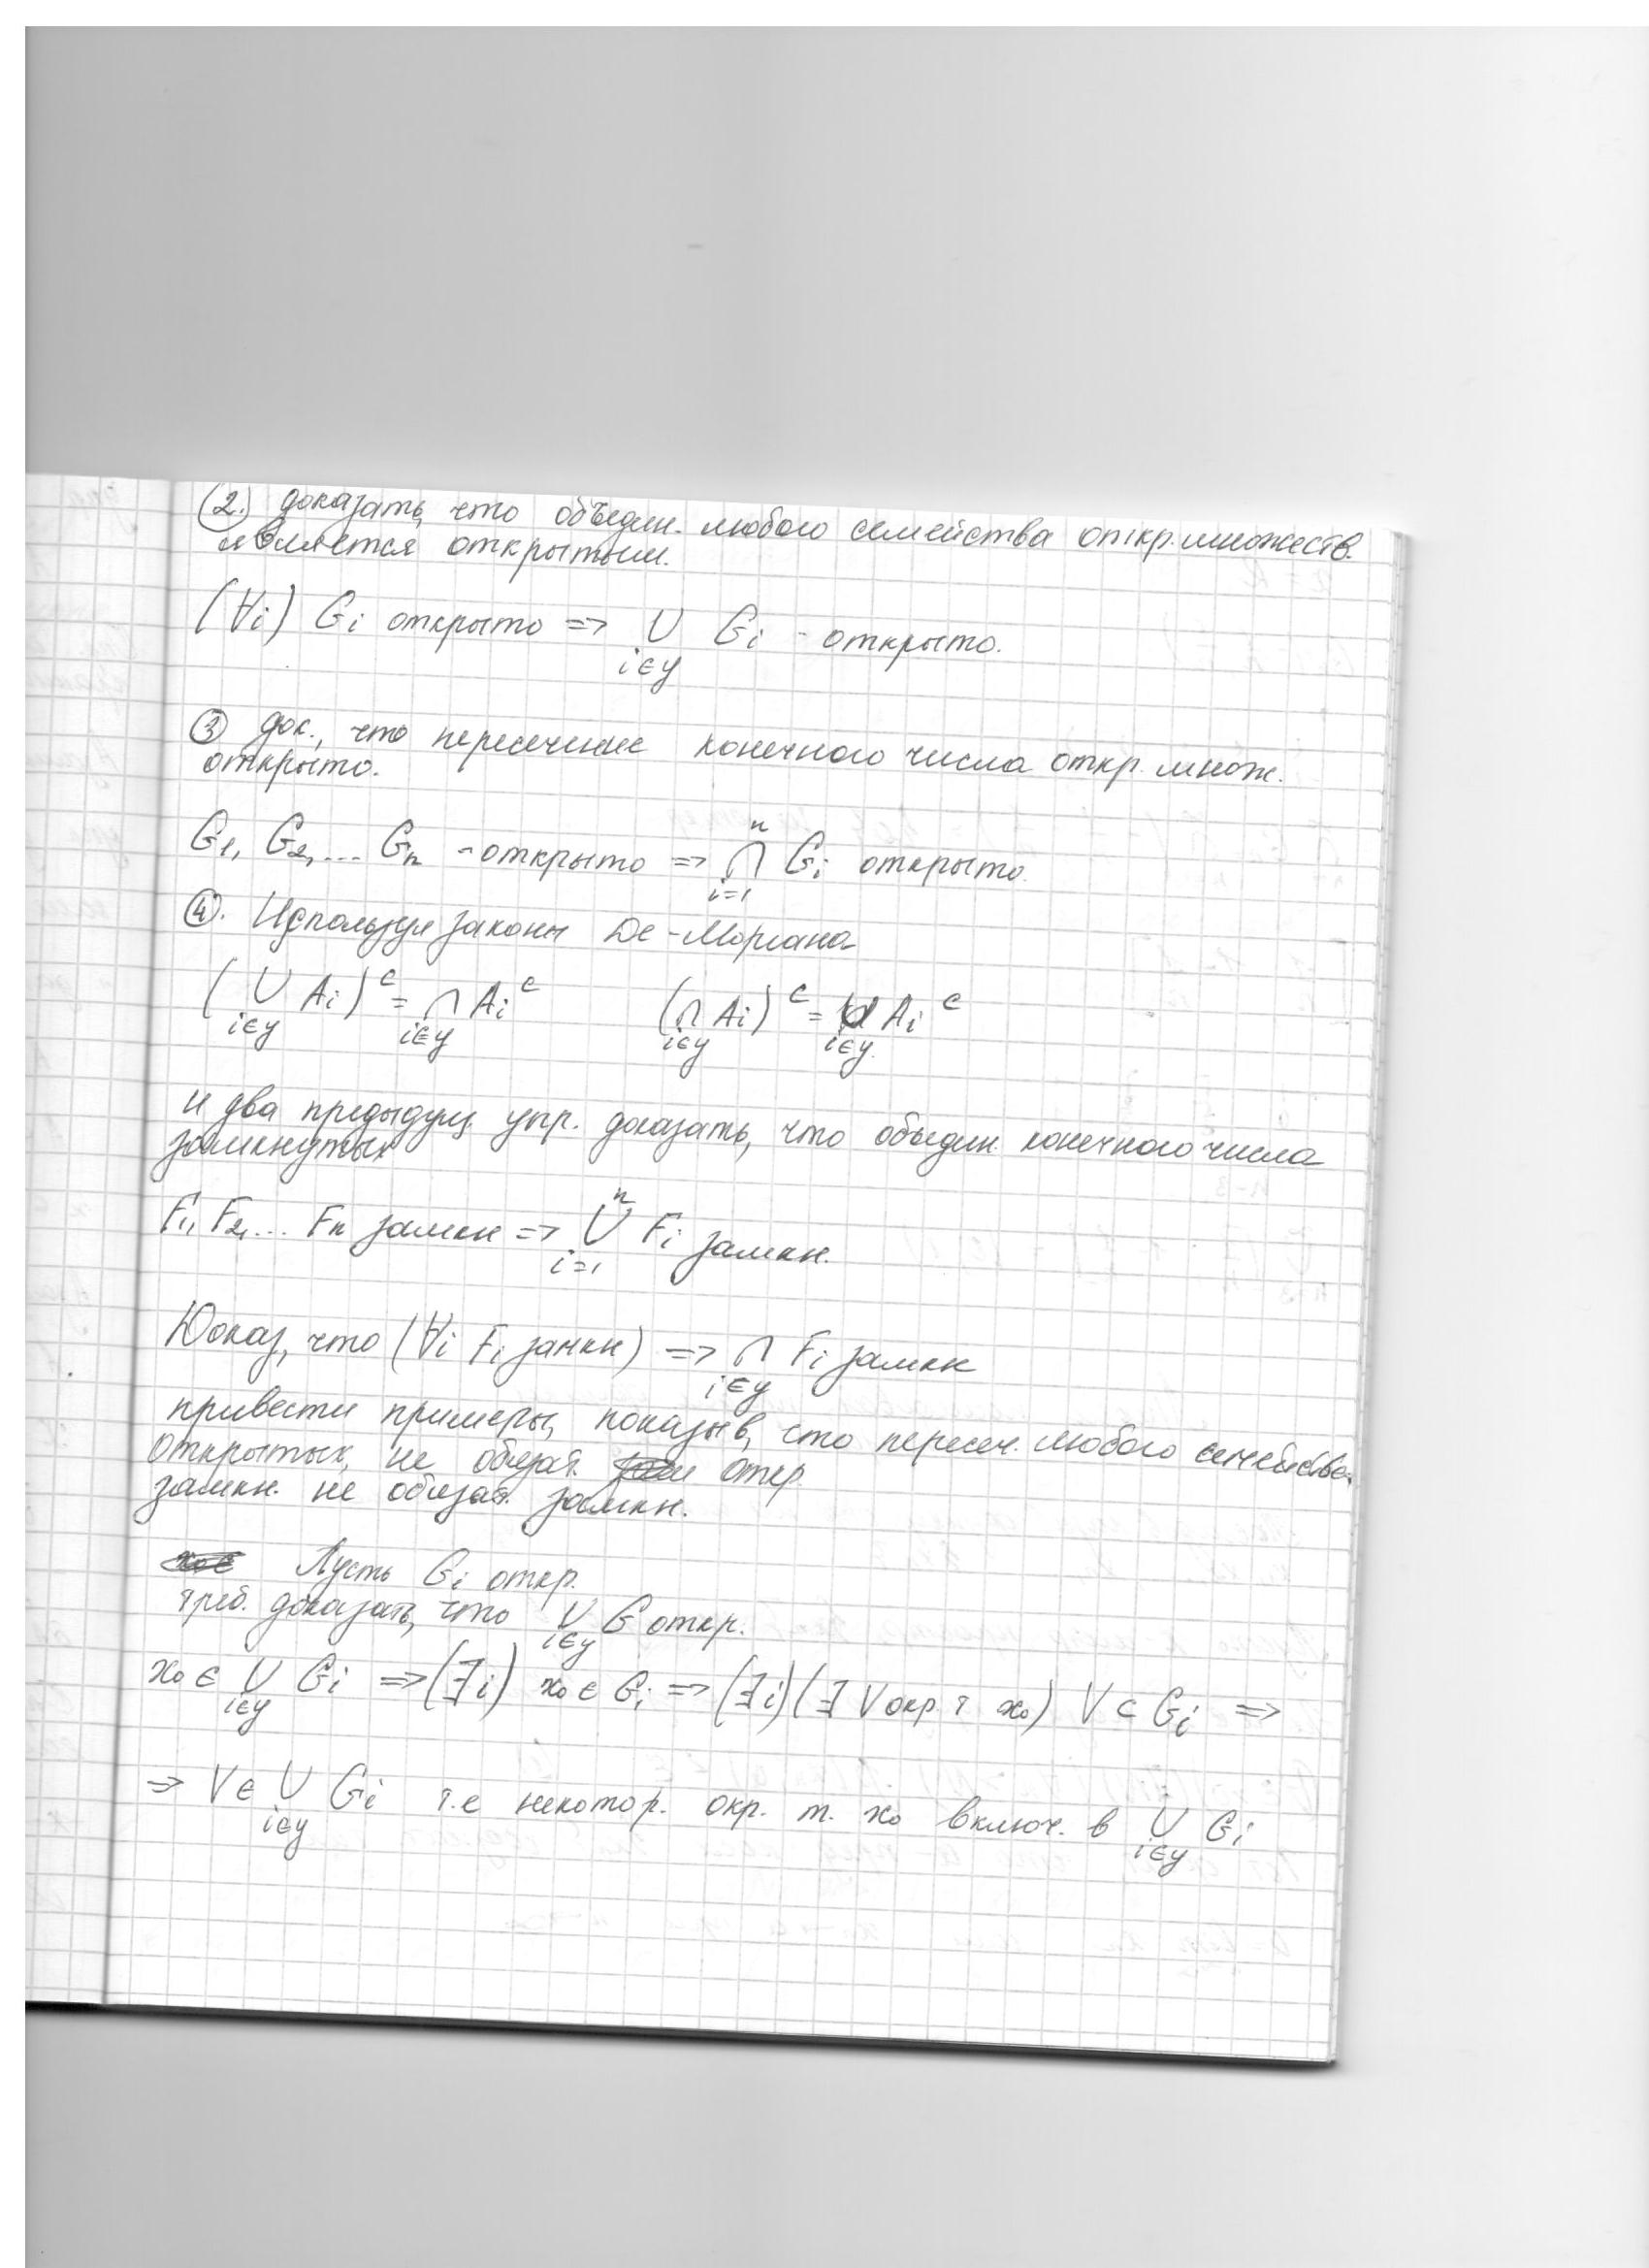 2. доказать, что объедин. любого семейства откр. множеств.
является открытым.
(∀i) Gi открыто => ∪ Gi - открыто.
i∈y
3 док., что пересечение конечного числа откр. множ.
открыто.
G1, G2, ... Gn - открыто => ∩ Gi открыто.
n
i=1
4. Используя законы Де-Моргана
(∪ Ai)^c = ∩ Ai^c (∩ Ai)^c = ∪ Ai^c
i∈y i∈y i∈y i∈y
и два предыдущ упр. доказать, что объедин. конечного числа
замкнутых
F1, F2, ... Fn замкн => ∪ Fi замкн.
n
i=1
Доказ, что (∀i Fi замкн) => ∩ Fi замкн
i∈y
привести примеры, показыв, что пересеч. любого семейства
открытых, не обязат. откр.
замкн. не обязат. замкн.
Пусть Gi откр.
треб. доказать, что ∪ G откр.
i∈y
x0 ∈ ∪ Gi => (∃i) x0 ∈ Gi => (∃i)(∃ V окр. т x0) V ⊂ Gi =>
i∈y
=> V ∈ ∪ Gi т.е некотор. окр. т. x0 включ. в ∪ Gi
i∈y i∈y